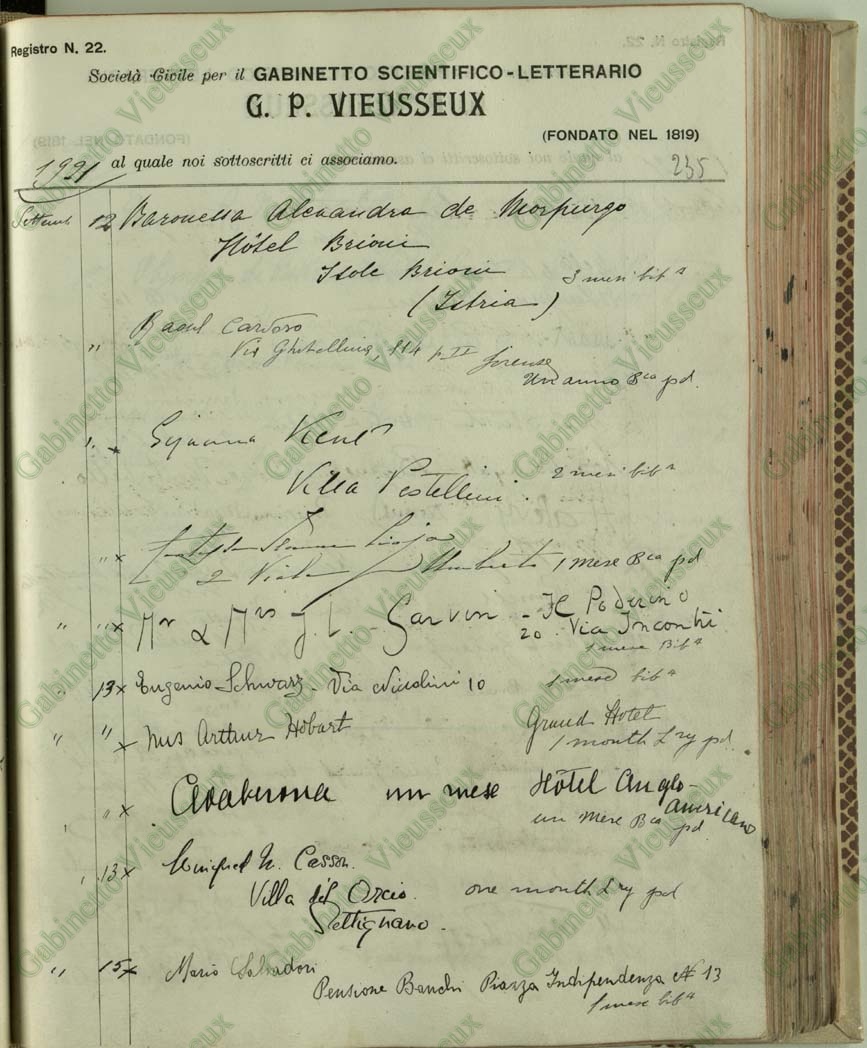 Registro N. 22.
Società Civile per il GABINETTO SCIENTIFICO-LETTERARIO
G. P. VIEUSSEUX
(FONDATO NEL 1819)
1921 al quale noi sottoscritti ci associamo. 235
Settemb 12 Baronessa Alexandra de Morpurgo
Hôtel Brioni
Isole Brioni 3 mesi bibª
(Istria)
" Raoul Cardoso
Via Ghibellina, 114 p II Firenze
Un anno Bca pd.
x René
Villa Pestellini. 2 mesi bibª
" x
2 Viale Umberto 1 mese Bca pd
" " x Mr & Mrs J. L. Garvin - Il Poderino
20. Via Incontri
1 mese Bibª
" 13 x Eugenio Schwarz - Via Niccolini 10 1 mese bibª
" " x Mrs Arthur Hobart Grand Hotel
1 month Lry pd.
" x un mese Hôtel Anglo-
Americano
un mese Bca pd
13 x Casson.
Villa dell Orcio. one month Lry pd
Settignano.
" 15 x Mario Salvadori
Pensione Banchi Piazza Indipendenza N 13
1 mese bibª
Gabinetto Vieusseux